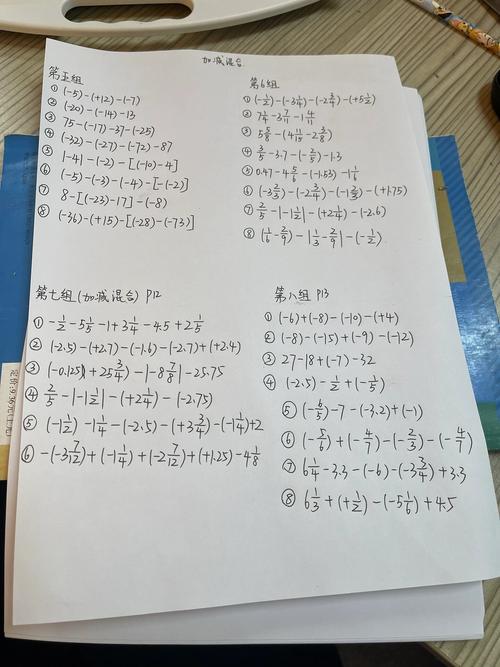 加减混合
第五组
① (-5)-(+12)-(-7)
② (-20)-(-14)-13
③ 75-(-17)-37-(-25)
④ (-32)-(-27)-(-72)-87
⑤ |-4|-(-2)-[(-10)-4]
⑥ (-5)-(-3)-(-4)-[-(-2)]
⑦ 8-[(-23)-17]-(-8)
⑧ (-36)-(+15)-[(-28)-(-73)]
第6组
① (-1/2)-(-3 1/4)-(-2 3/4)-(+5 1/2)
② 7 1/4-3 7/11-1 4/11
③ 5 5/8-(4 11/15-2 3/8)
④ 3/5-3.7-(-2/5)-1.3
⑤ 0.47-4 5/6-(-1.53)-1 1/6
⑥ (-3 2/3)-(-2 3/4)-(-1 2/3)-(+1.75)
⑦ 2/5-|-1 1/2|-(+2 1/4)-(-2.6)
⑧ (1/6-2/9)-|1/3-2/9|-(-1/2)
第七组(加减混合) P12
① -1/2-5 1/5-1+3 1/4-4.5+2 1/5
② (-2.5)-(+2.7)-(-1.6)-(-2.7)+(+2.4)
③ (-0.125)+25 3/4)-|-8 7/8|-25.75
④ 2/5-|-1 1/2|-(+2 1/4)-(-2.75)
⑤ (-1 1/2)-1 1/4-(-2.5)-(+3 3/4)-(-1 1/4)+2
⑥ -(-3 7/12)+(-1 1/4)+(-2 7/12)+(+1.25)-4 1/8
第八组 P13
① (-6)+(-8)-(-10)-(+4)
② (-8)-(-15)+(-9)-(-12)
③ 27-18+(-7)-32
④ (-2.5)-1/2+(-1/5)
⑤ (-6/5)-7-(-3.2)+(-1)
⑥ (-5/6)+(-4/7)-(-2/3)-(-4/7)
⑦ 6 1/4-3.3-(-6)-(-3 3/4)+3.3
⑧ 6 1/3+(+1/2)-(-5 1/6)+4.5